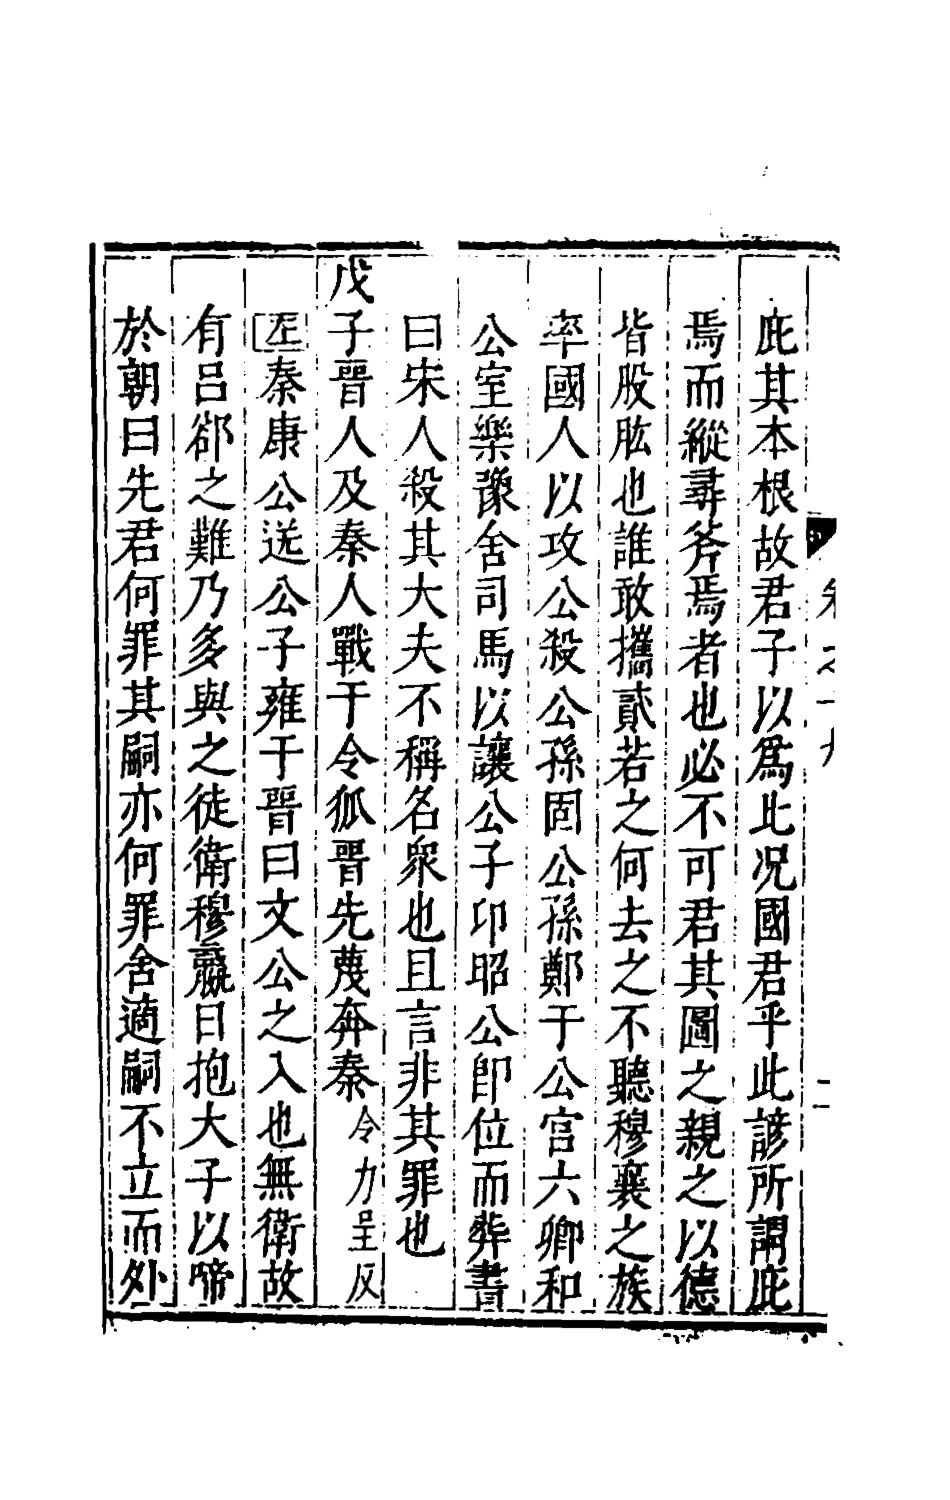 卷之十九
二
庇其本根故君子以爲比况國君乎此諺所謂庇
焉而縱尋斧焉者也必不可君其圖之親之以德
皆股肱也誰敢攜貳若之何去之不聽穆襄之族
率國人以攻公殺公孫固公孫鄭于公宮六卿和
公室樂豫舍司馬以讓公子卬昭公卽位而葬書
曰宋人殺其大夫不稱名衆也且言非其罪也
戊子晉人及秦人戰于令狐晉先蔑奔秦令力呈反
左秦康公送公子雍于晉曰文公之入也無衛故
有呂郤之難乃多與之徒衛穆嬴日抱大子以啼
於朝曰先君何罪其嗣亦何罪舍適嗣不立而外